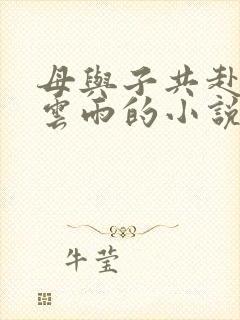 母與子共赴
雲雨的小說
牛莹